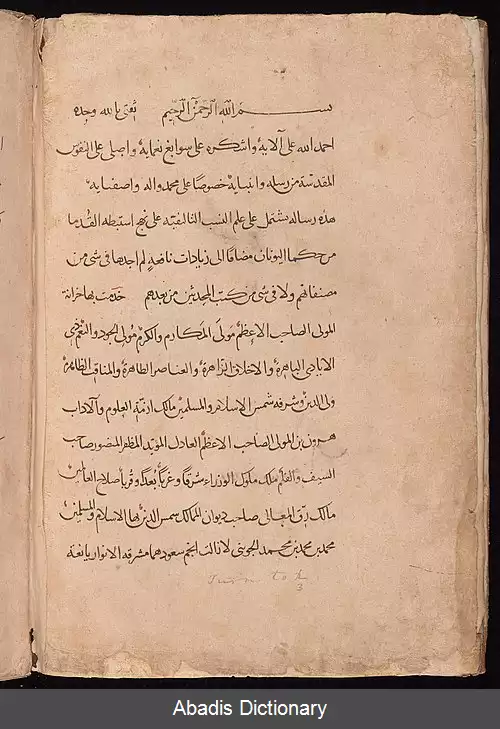 بسم الله الرحمن الرحيم ثقتى بالله وحده
احمد الله على آلايه واشكره على سوابغ نعمايه واصلى على النفوس
المقدسة من رسله وانبيايه خصوصا على محمد واله واصفيايه
هذه رساله تشتمل على علم النسب التاليفيه على نهج استنبطه القدما
من حكما اليونان مضافا الى زيادات نافعه لم اجدها فى شى من
مصنفاتهم ولا فى شى من كتب المحدثين من بعدهم خدمت بها خزانة
المولى الصاحب الاعظم مولى المكارم والكرم مولى الجود والنعم ذى
الايادى الباهرة والاخلاق الزاهرة والعناصر الطاهرة والمناقب الظاهرة
ولى الدين وشرفه شمس الاسلام والمسلمين مالك ازمة العلوم والآداب
هرون بن المولى الصاحب الاعظم العادل المؤيد المظفر المنصور صاحب
السيف والقلم ملك ملوك الوزراء شرقا وغربا بعدا وقربا صلاح العالمين
مالك رق المعالى صاحب ديوان الممالك شمس الدين بها الاسلام والمسلمين
محمد بن محمد بن محمد الجوينى لا زالت انجم سعودهما مشرقه الانوار يانعة
3
Abadis Dictionary